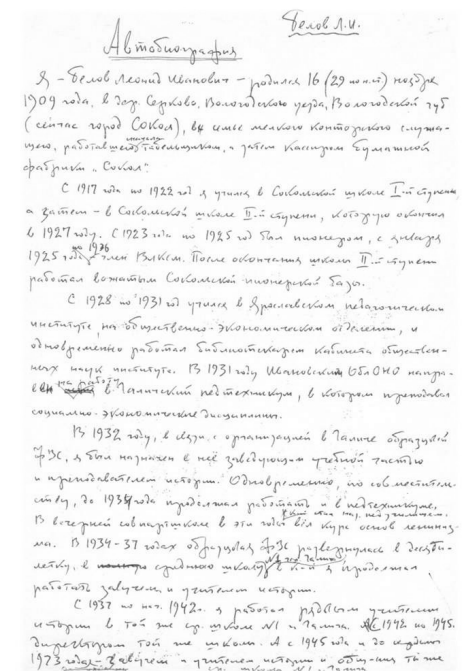 Белов Л.И.
Автобиография
Я – Белов Леонид Иванович – родился 16 (29 по н.ст) ноября
1909 года, в дер. Серково, Вологодского уезда, Вологодской губ
(сейчас город Сокол), в семье мелкого конторского служа-
щего, работавшего табельщиком, а затем кассиром бумажной
фабрики „Сокол".
С 1917 года по 1922 год я учился в Сокольской школе I-й ступени
а затем – в Сокольской школе II-й ступени, которую окончил
в 1927 году. С 1923 года по 1925 год был пионером, с января
1925 года по 1936 член ВЛКСМ. После окончания школы II-й ступени
работал вожатым Сокольской пионерской базы.
С 1928 по 1931 год учился в Ярославском педагогическом
институте, на общественно-экономическом отделении, и
одновременно работал библиотекарем кабинета обществен-
ных наук института. В 1931 году Ивановским ОблОНО направ-
лен на работу в Галичский педтехникум, в котором преподавал
социально-экономические дисциплины.
В 1932 году, в связи с организацией в Галиче образцовой
ФЗС, я был назначен в неё заведующим учебной частью
и преподавателем истории. Одновременно, по совместитель-
ству, до 1934 года продолжал работать и в педтехникуме,
В вечерней совпартшколе в эти годы вёл курс основ лениниз-
ма. В 1934-37 годах образцовая ФЗС развернулась в десяти-
летку, в среднюю школу №1 я продолжал
работать завучем и учителем истории.
С 1937 по 1942 я работал рядовым учителем
истории в той же ср. школе №1 г. Галича. С 1942 по 1945
директором той же школы. А с 1945 года и до
1973 года – завучем и учителем истории и